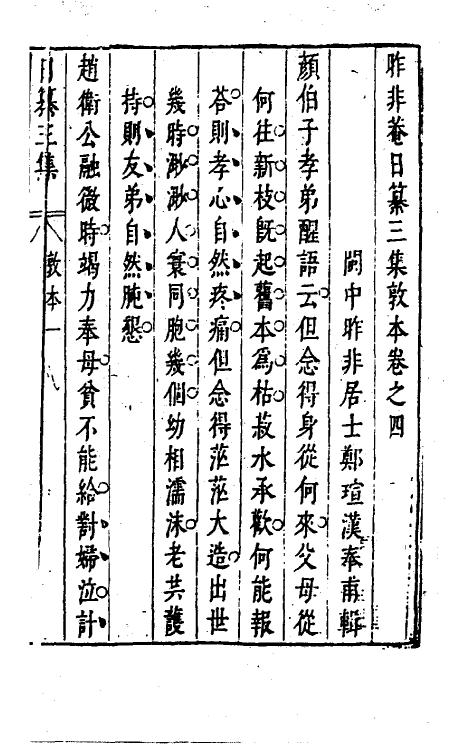 昨非菴日纂三集敦本卷之四
閩中昨非居士鄭瑄漢奉甫輯
顏伯子孝弟醒語云但念得身從何來父母從
何往新枝旣起舊本爲枯菽水承歡何能報
荅則孝心自然疼痛但念得茫茫大造出世
幾時渺渺人寰同胞幾個幼相濡沫老共護
持則友弟自然肫懇
趙衛公融微時竭力奉母貧不能給對婦泣計
日纂三集 敦本一